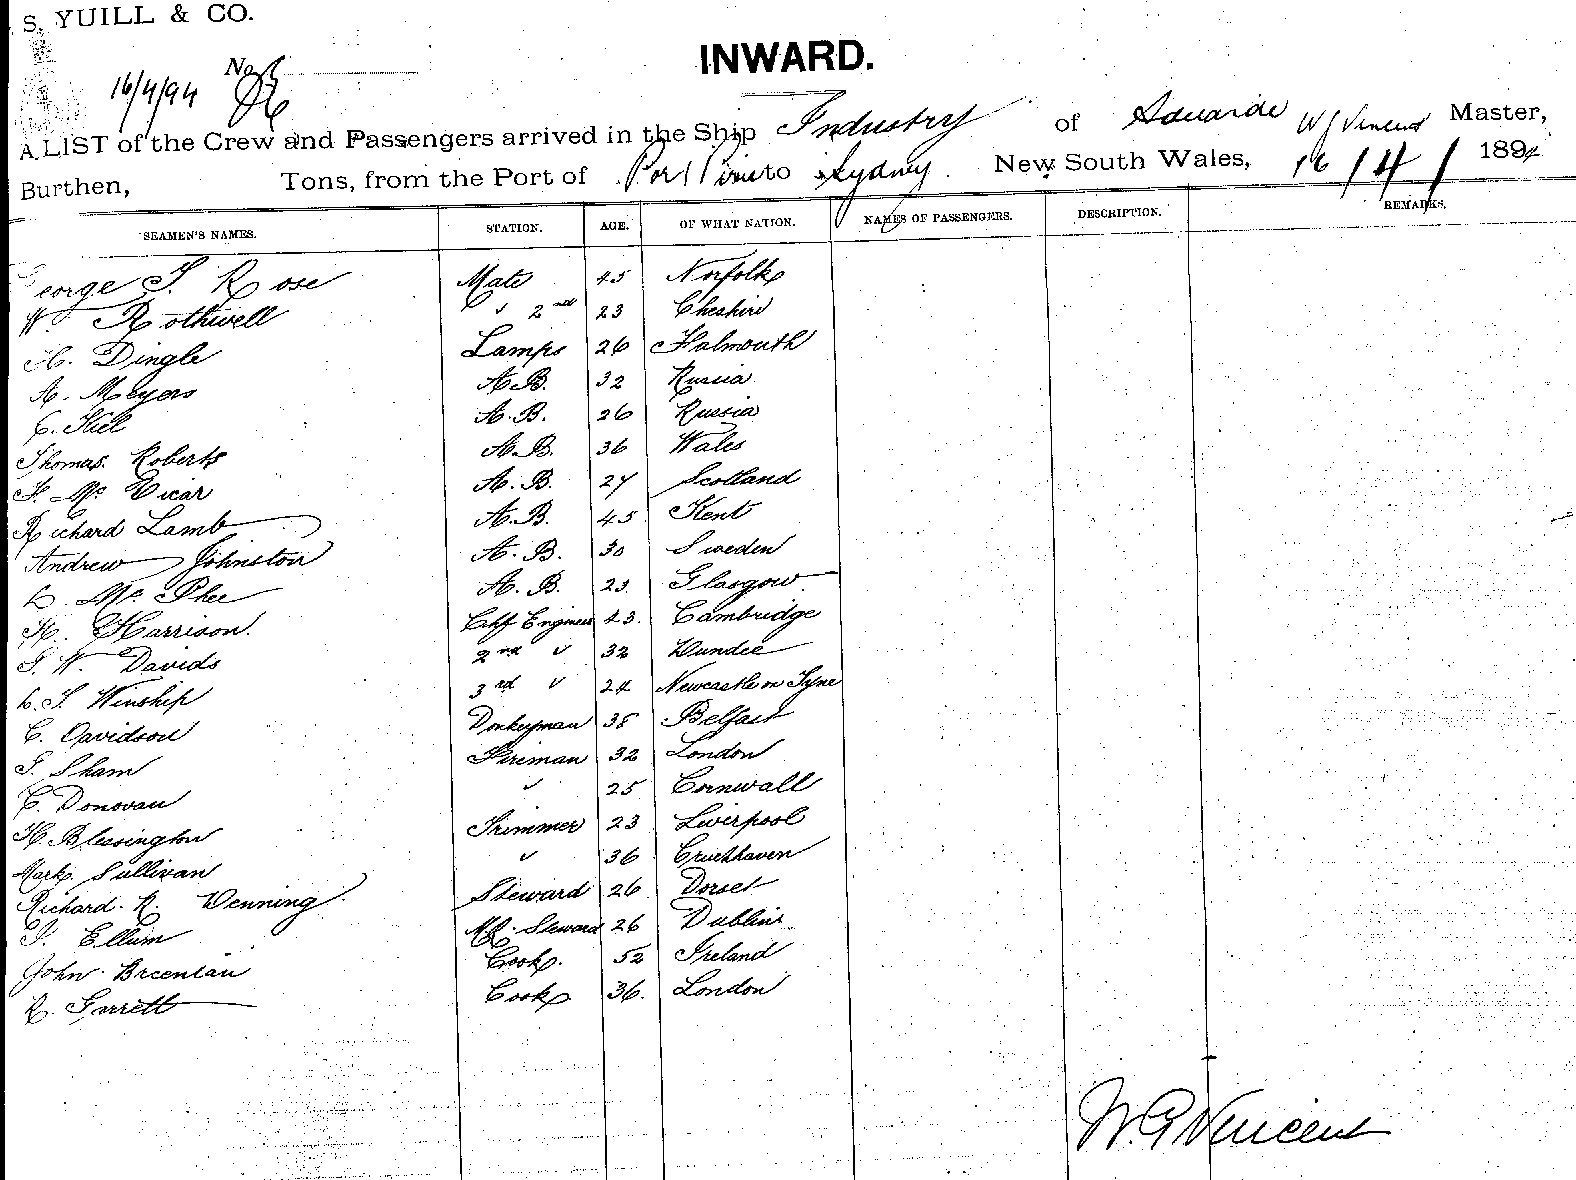 S. YUILL & CO.
INWARD.
16/4/94 No.
A LIST of the Crew and Passengers arrived in the Ship Industry of W J Vincent Master,
Burthen, Tons, from the Port of Port Pirie to Sydney. New South Wales, 16/4/1894
SEAMEN'S NAMES. STATION. AGE. OF WHAT NATION. NAMES OF PASSENGERS. DESCRIPTION. REMARKS.
George T. Rose Mate 45 Norfolk
W Rothwell " 2nd 23 Cheshire
H. Dingle Lamps 26 Falmouth
A. Meyers A.B. 32 Russia
C. Kiel A.B. 26 Russia
Thomas. Roberts A.B. 36 Wales
Mc Vicar A.B. 27 Scotland
Richard Lamb A.B. 45 Kent
Andrew Johnston A.B. 30 Sweden
Mc Phee A.B. 23 Glasgow
H. Harrison. Chf Engineer 43 Cambridge
W. Davids 2nd " 32 Dundee
Winship 3rd " 24 Newcastle on Tyne
C. Davidson Donkeyman 38 Belfast
Sham Fireman 32 London
C. Donovan " 25 Cornwall
H. Blessington Trimmer 23 Liverpool
Mark Sullivan " 36
Richard. R. Venning Steward 26 Dorset
Ellum Steward 26 Dublin
John Cook. 52 Ireland
R. Garrett Cook 36. London
W. G Vincent